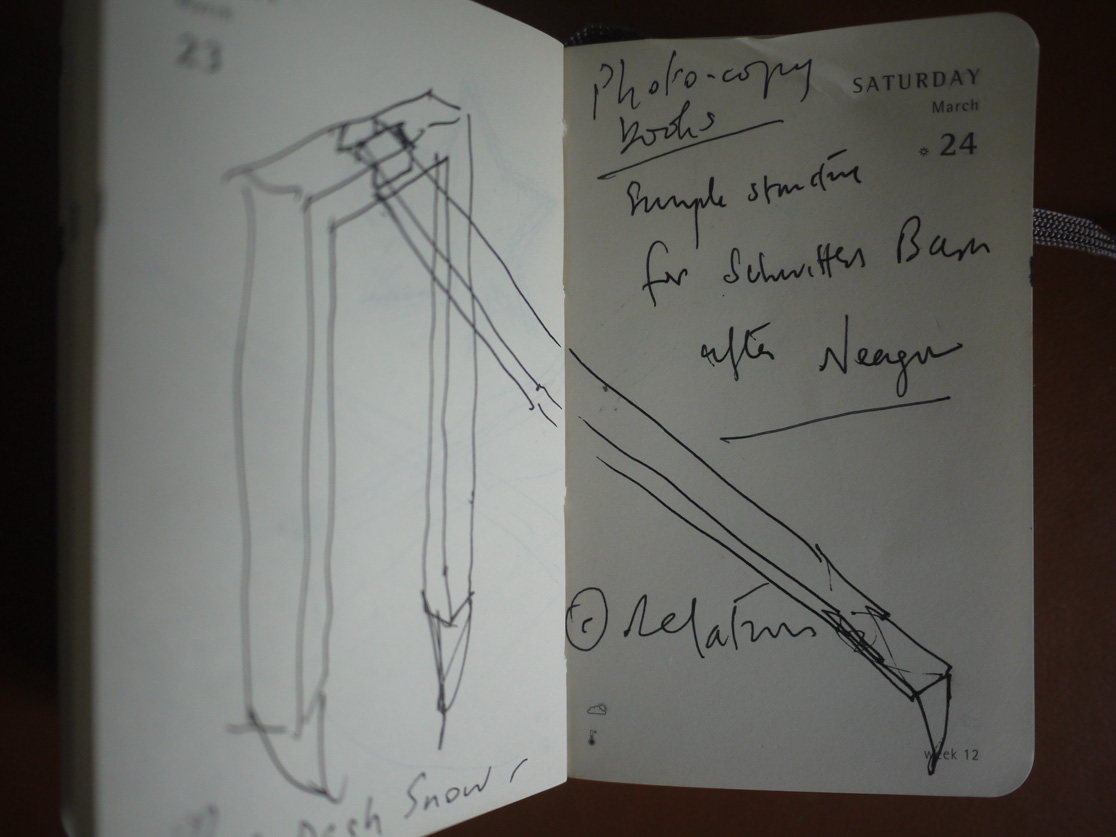 March
23
Snow
Photo-copy
books
SATURDAY
March
24
Simple structure
for Schwitters Barn
after Neagu
relations
week 12